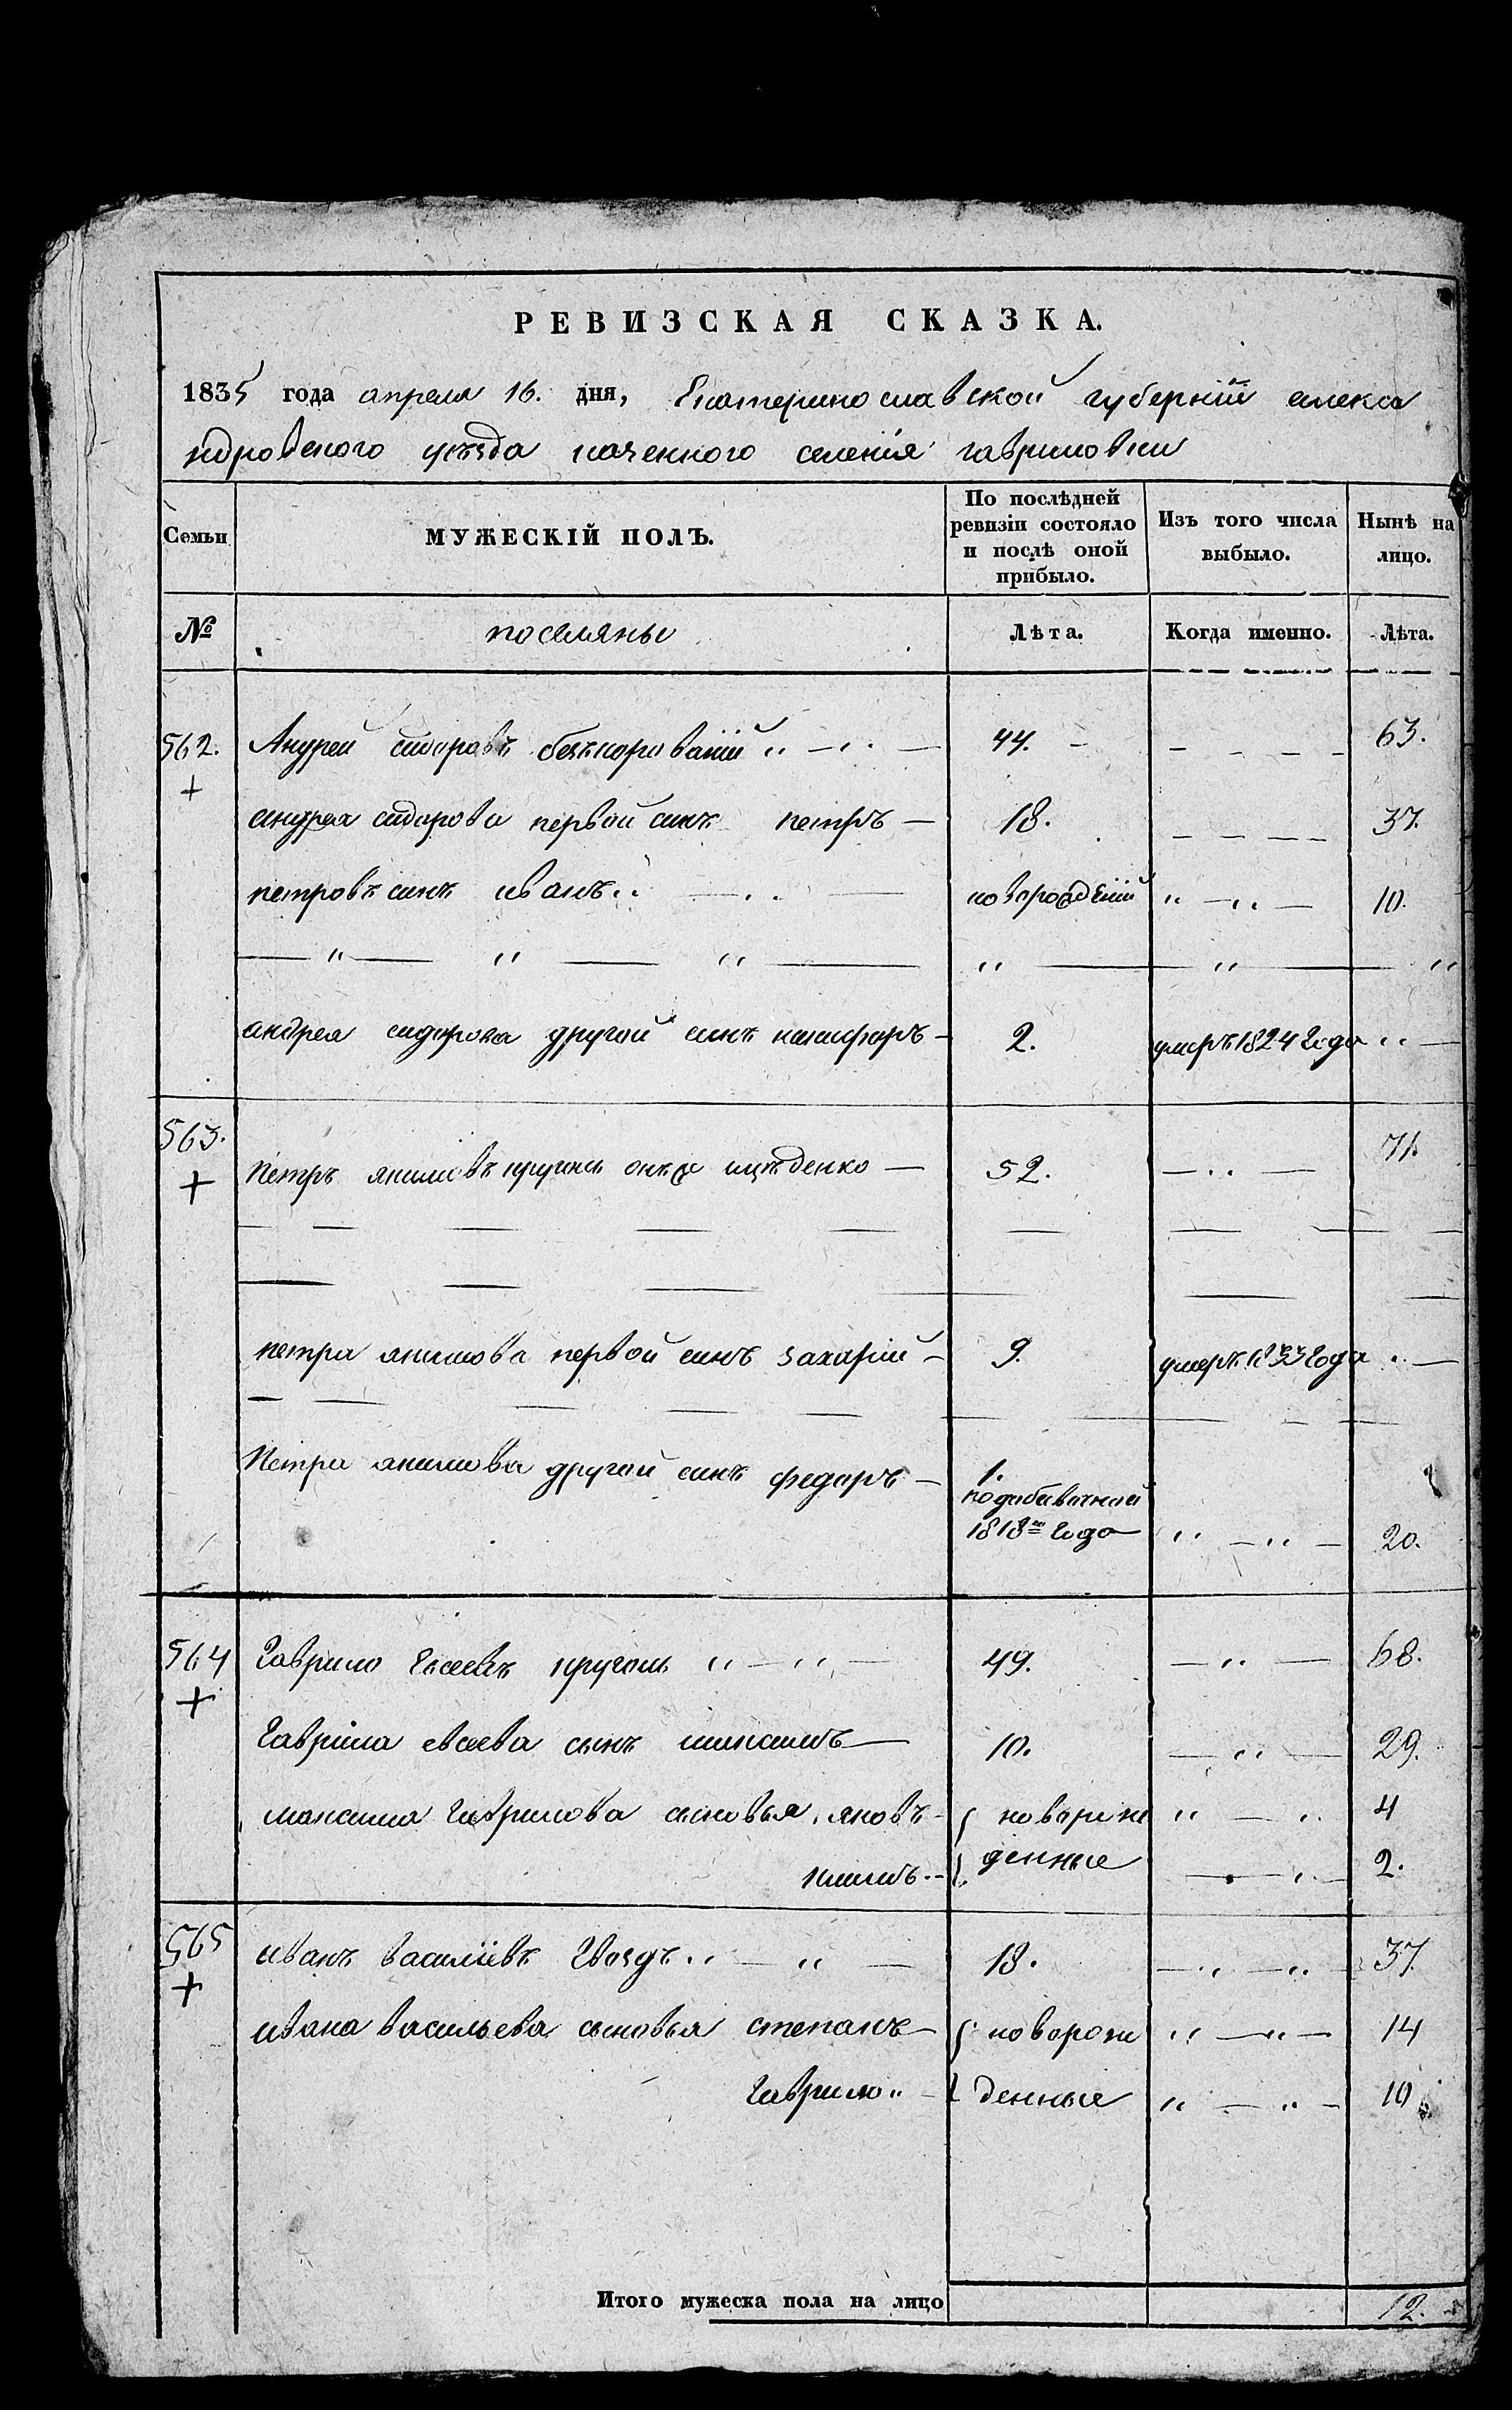 РЕВИЗСКАЯ СКАЗКА.
1835 года апреля 16. дня, Екатеринославской губернии алекса
ндровского уезда казенного селения гавриловки
Семьи
МУЖЕСКІЙ ПОЛЪ.
По послѣдней ревизіи состояло и послѣ оной прибыло.
Изъ того числа выбыло.
Нынѣ на лицо.
№ поселяны Лѣта. Когда именно. Лѣта.
562. Андрей сидоровъ 44. 63.
андрея сидорова первой синъ петръ 18. 37.
петровъ синъ иванъ новорожденій 10.
андрея сидорова другой синъ 2. умеръ 1824 года
563. Петръ якимовъ онъже 52. 71.
петра якимова первой синъ захарій 9. умеръ 1833 года
Петра якимова другой синъ федоръ 1.
1818го года 20.
564 Гаврило Евсеевъ круголь 49. 68.
Гаврила евсеева сынъ максимъ 10. 29.
максима Гаврилова сыновья яковъ новорож 4
климъ денные 2.
565 иванъ василіевъ Гвоздъ 18. 37
ивана васильева сыновья степанъ новорож 14
Гаврило денные 10
Итого мужеска пола на лицо 12.